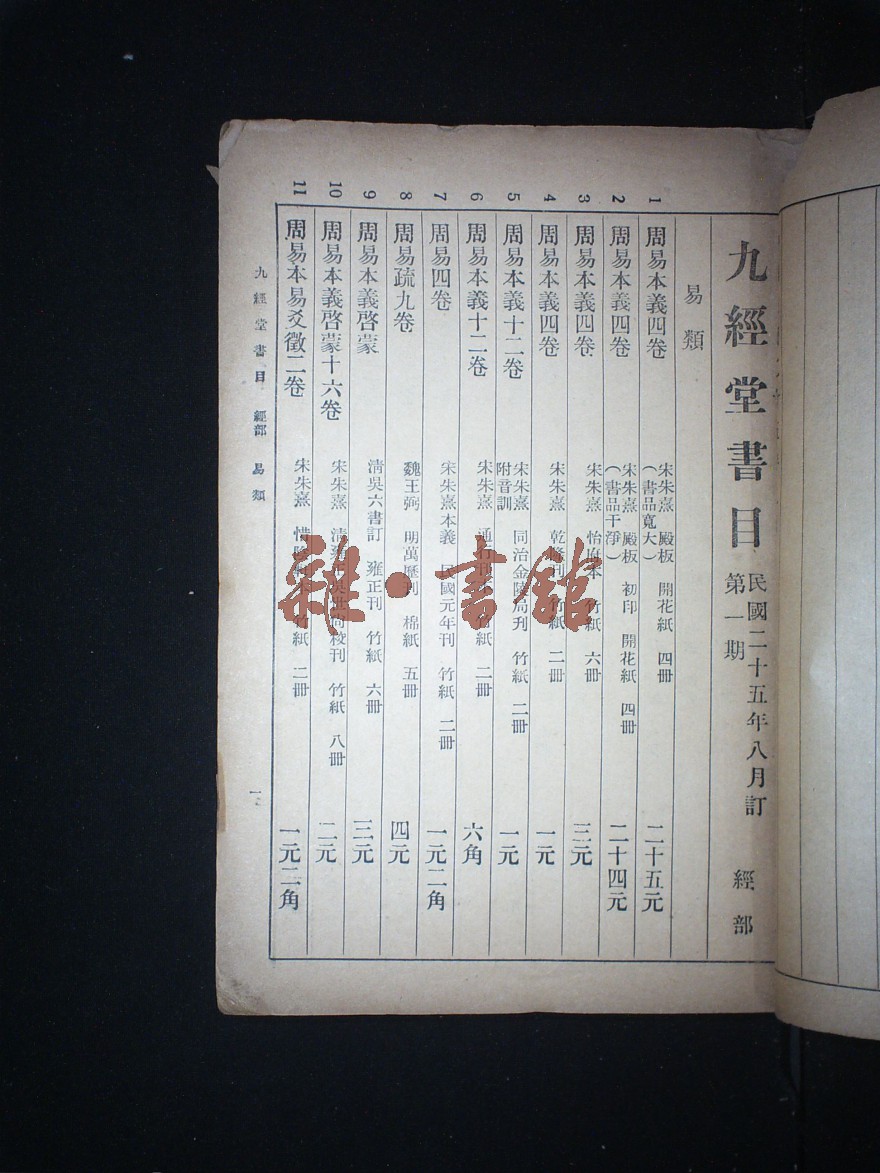 九經堂書目 民國二十五年八月訂 第一期 經部
易類
1 周易本義四卷 宋朱熹 殿板 開花紙 四冊 (書品寬大) 二十五元
2 周易本義四卷 宋朱熹 殿板 初印 開花紙 四冊 (書品干淨) 二十四元
3 周易本義四卷 宋朱熹 怡府本 竹紙 六冊 三元
4 周易本義四卷 宋朱熹 乾隆刊 竹紙 二冊 一元
5 周易本義十二卷 附音訓 宋朱熹 同治金陵局刋 竹紙 二冊 一元
6 周易本義十二卷 宋朱熹 通行刊本 竹紙 二冊 六角
7 周易四卷 宋朱熹本義 民國元年刊 竹紙 二冊 一元二角
8 周易疏九卷 魏王弼 明萬歷刊 棉紙 五冊 四元
9 周易本義啓蒙 清吳六書訂 雍正刊 竹紙 六冊 三元
10 周易本義啓蒙十六卷 宋朱熹 清雍正吳世尚校刊 竹紙 八冊 二元
11 周易本易爻徵二卷 宋朱熹 惜陰軒本 竹紙 二冊 一元二角
九經堂書目 經部 易類
一
雜·書館